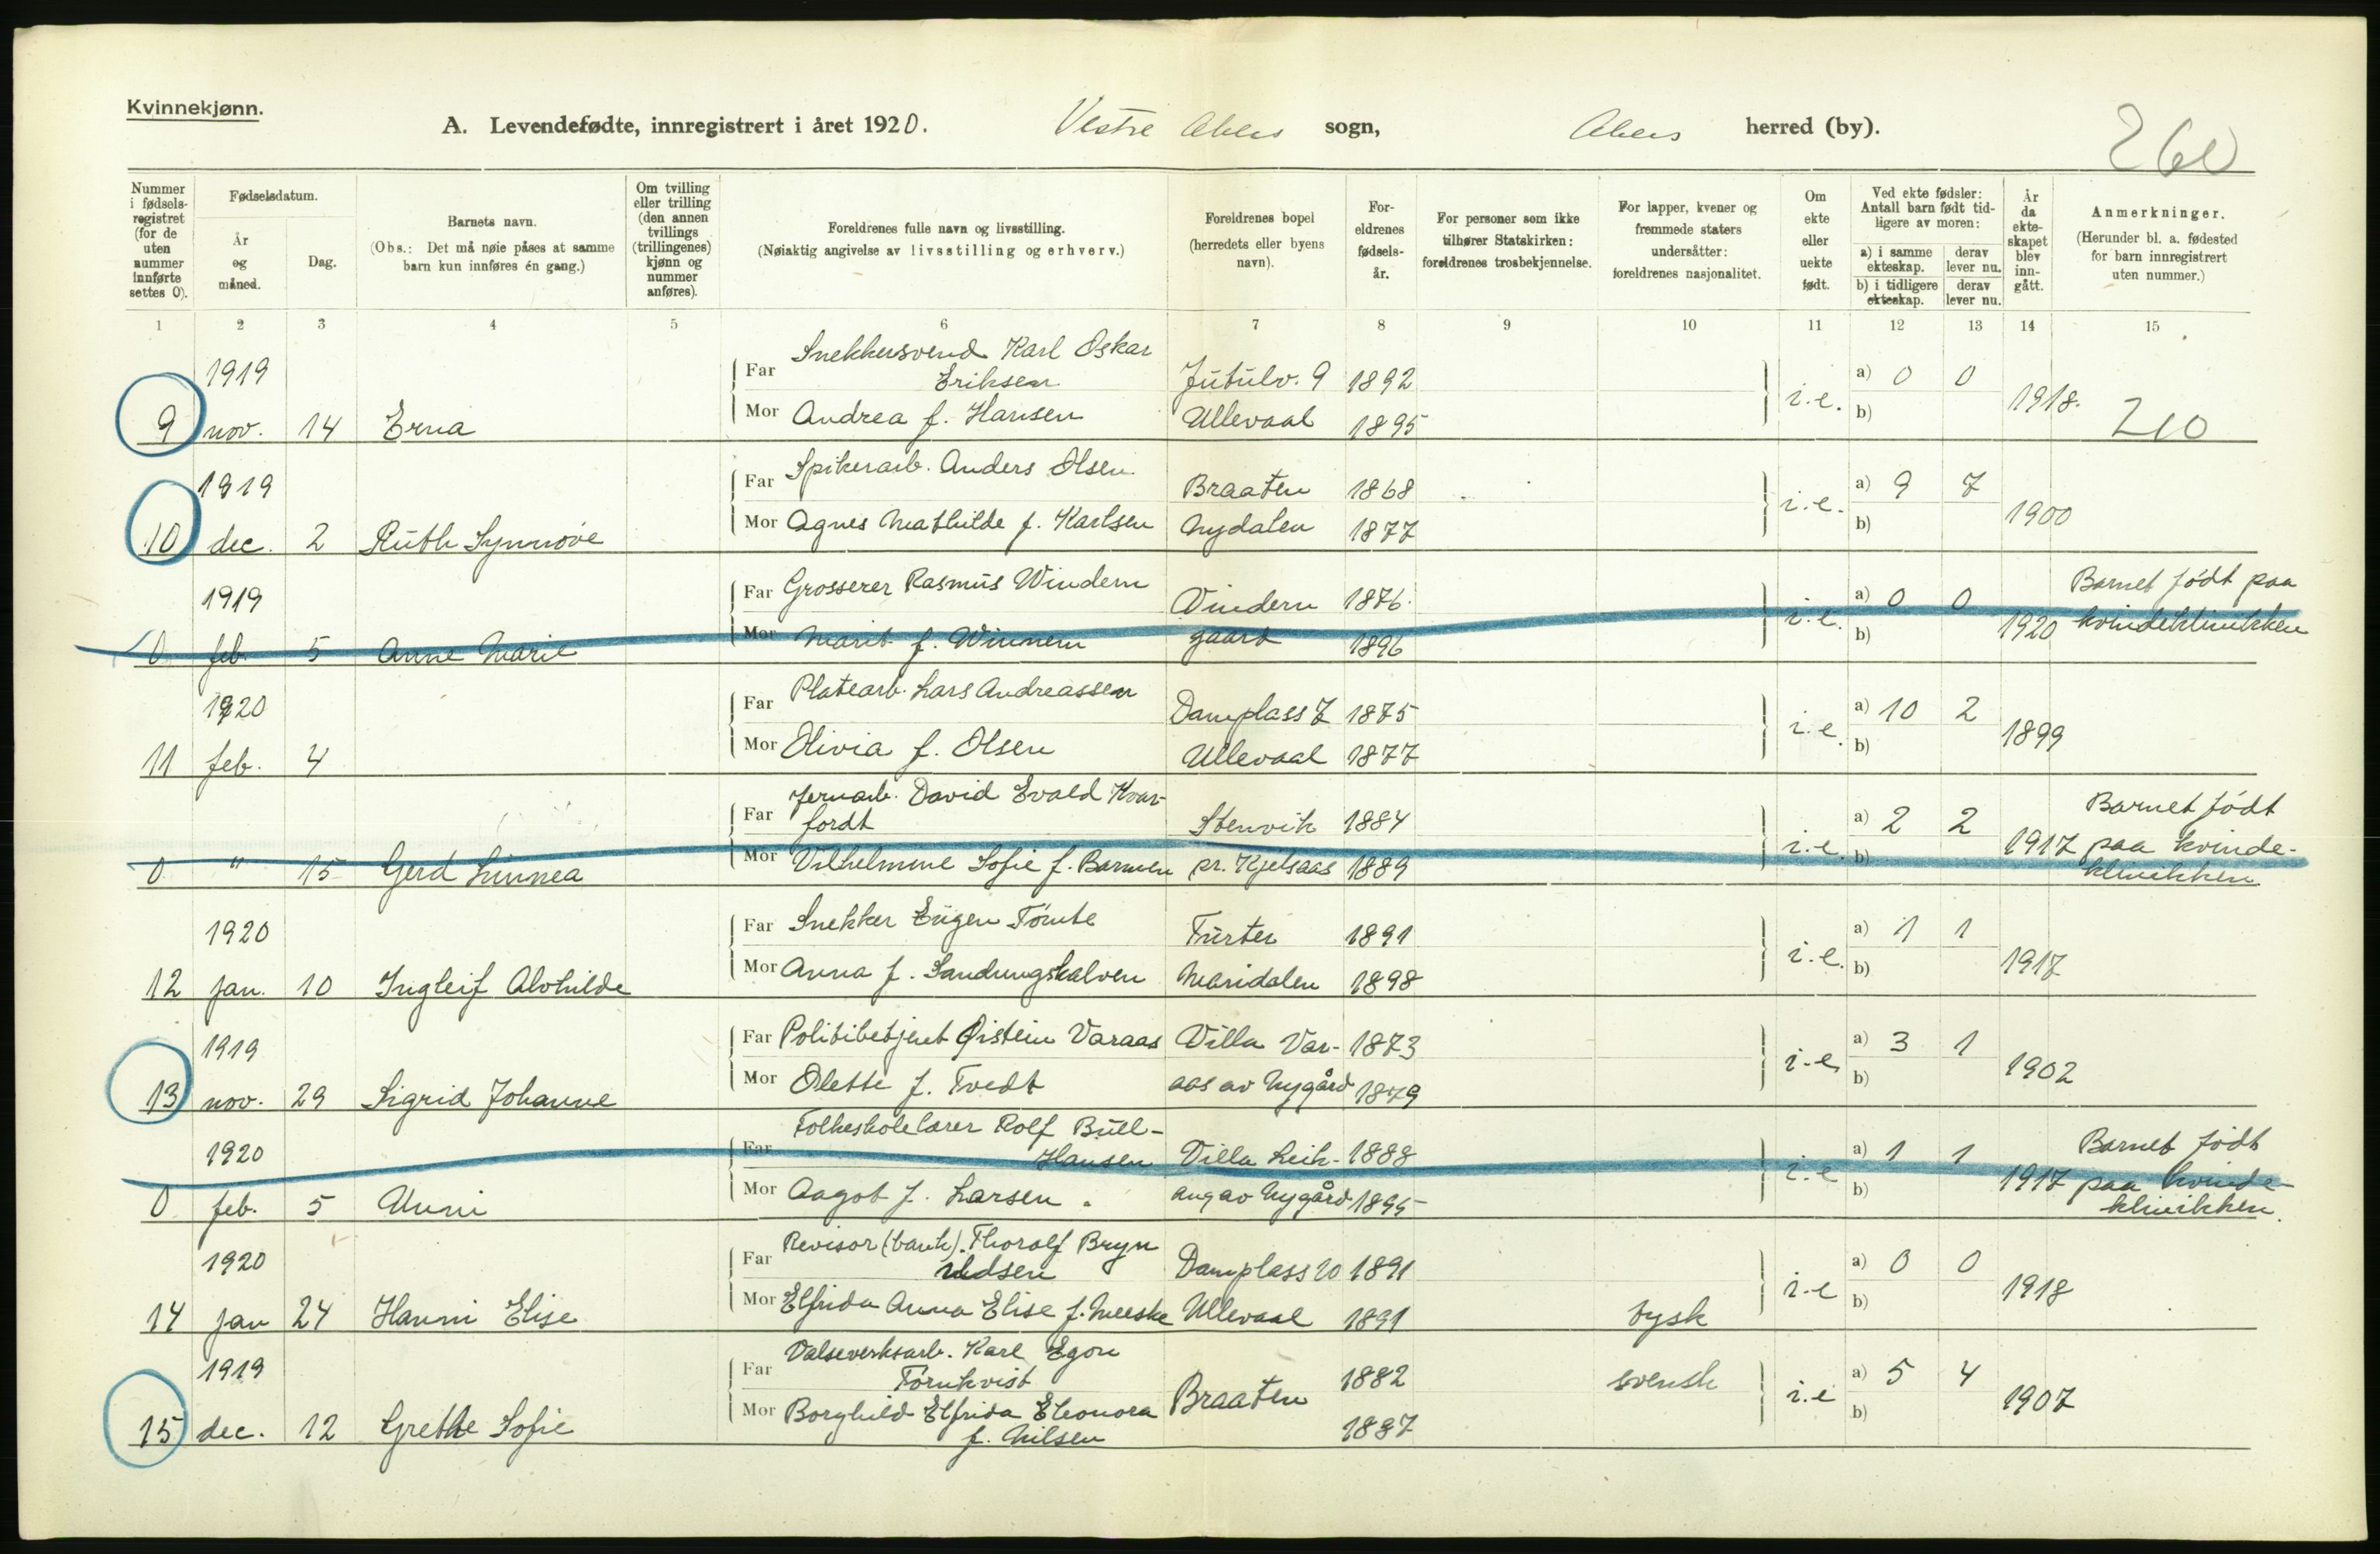 Kvinnekjønn.
A. Levendefødte, innregistrert i året 1920. Vestre Akers sogn, Akers herred (by).
260
Nummer i fødsels-registret (for de uten nummer innførte settes 0).
Fødselsdatum.
År og måned.
Dag.
Barnets navn.
(Obs.: Det må nøie påses at samme barn kun innføres én gang.)
Om tvilling eller trilling (den annen tvillings (trillingenes) kjønn og nummer anføres).
Foreldrenes fulle navn og livsstilling.
(Nøiaktig angivelse av livsstilling og erhverv.)
Foreldrenes bopel (herredets eller byens navn).
For-eldrenes fødsels-år.
For personer som ikke tilhører Statskirken: foreldrenes trosbekjennelse.
For lapper, kvener og fremmede staters undersåtter: foreldrenes nasjonalitet.
Om ekte eller uekte født.
Ved ekte fødsler: Antall barn født tid-ligere av moren:
a) i samme ekteskap. derav lever nu.
b) i tidligere ekteskap. derav lever nu.
År da ekte-skapet blev inn-gått.
Anmerkninger.
(Herunder bl. a. fødested for barn innregistrert uten nummer.)
1 2 3 4 5 6 7 8 9 10 11 12 13 14 15
1919 Far Snekkersvend Karl Oskar Eriksen Jutulv. 9 1892 i.e. a) 0 0 1918.
9 nov. 14 Erna Mor Andrea f. Hansen Ullevaal 1895 b) 210
1919 Far Spikerarb. Anders Olsen Braaten 1868 i.e. a) 9 7 1900
10 dec. 2 Ruth Synnøve Mor Agnes Mathilde f. Karlsen Nydalen 1877 b)
1919 Far Grosserer Rasmus Windern Vindern 1876. i.e. a) 0 0 1920 Barnet født paa
0 feb. 5 Anne Marie Mor Marit f. Winnem gaard 1896 b) kvindeklinikken
1920 Far Platearb. Lars Andreassen Damplass 7 1875 i.e. a) 10 2 1899
11 feb. 4 Mor Olivia f. Olsen Ullevaal 1877 b)
Far Jernarb. David Evald Kvar-fordt Stenvik 1884 i.e. a) 2 2 1917 Barnet født
0 " 15 Gerd Linnea Mor Vilhelmine Sofie f. Barmen pr. Kjelsaas 1889 b) paa kvinde-klinikken
1920 Far Snekker Eugen Tømte Turter 1891 i.e. a) 1 1 1917
12 jan. 10 Ingleif Alvhilde Mor Anna f. Sandungskalven Maridalen 1898 b)
1919 Far Politibetjent Øistein Varaas Villa Var- 1873 i-e a) 3 1 1902
13 nov. 29 Sigrid Johanne Mor Olette f. Tvedt aas av Nygård 1879 b)
1920 Far Folkeskolelærer Rolf Bull-Hansen Villa Leik- 1888 i.e a) 1 1 1917 Barnet født
0 feb. 5 Unni Mor Aagot f. Larsen. ang av Nygård 1895 b) paa kvinde-klinikken.
1920 Far Revisor (bank). Thoralf Bryn Damplass 20 1891 i-e a) 0 0 1918
14 jan 24 Hanni Elise Mor Elfrida Anna Elise f. Meeske Ullevaal 1891 tysk b)
1919 Far Valseverksarb. Karl Egon Törnkvist Braaten 1882 svensk i.e a) 5 4 1907
15 dec. 12 Grethe Sofie Mor Borghild Elfrida Eleonora f. Nilsen 1887 b)